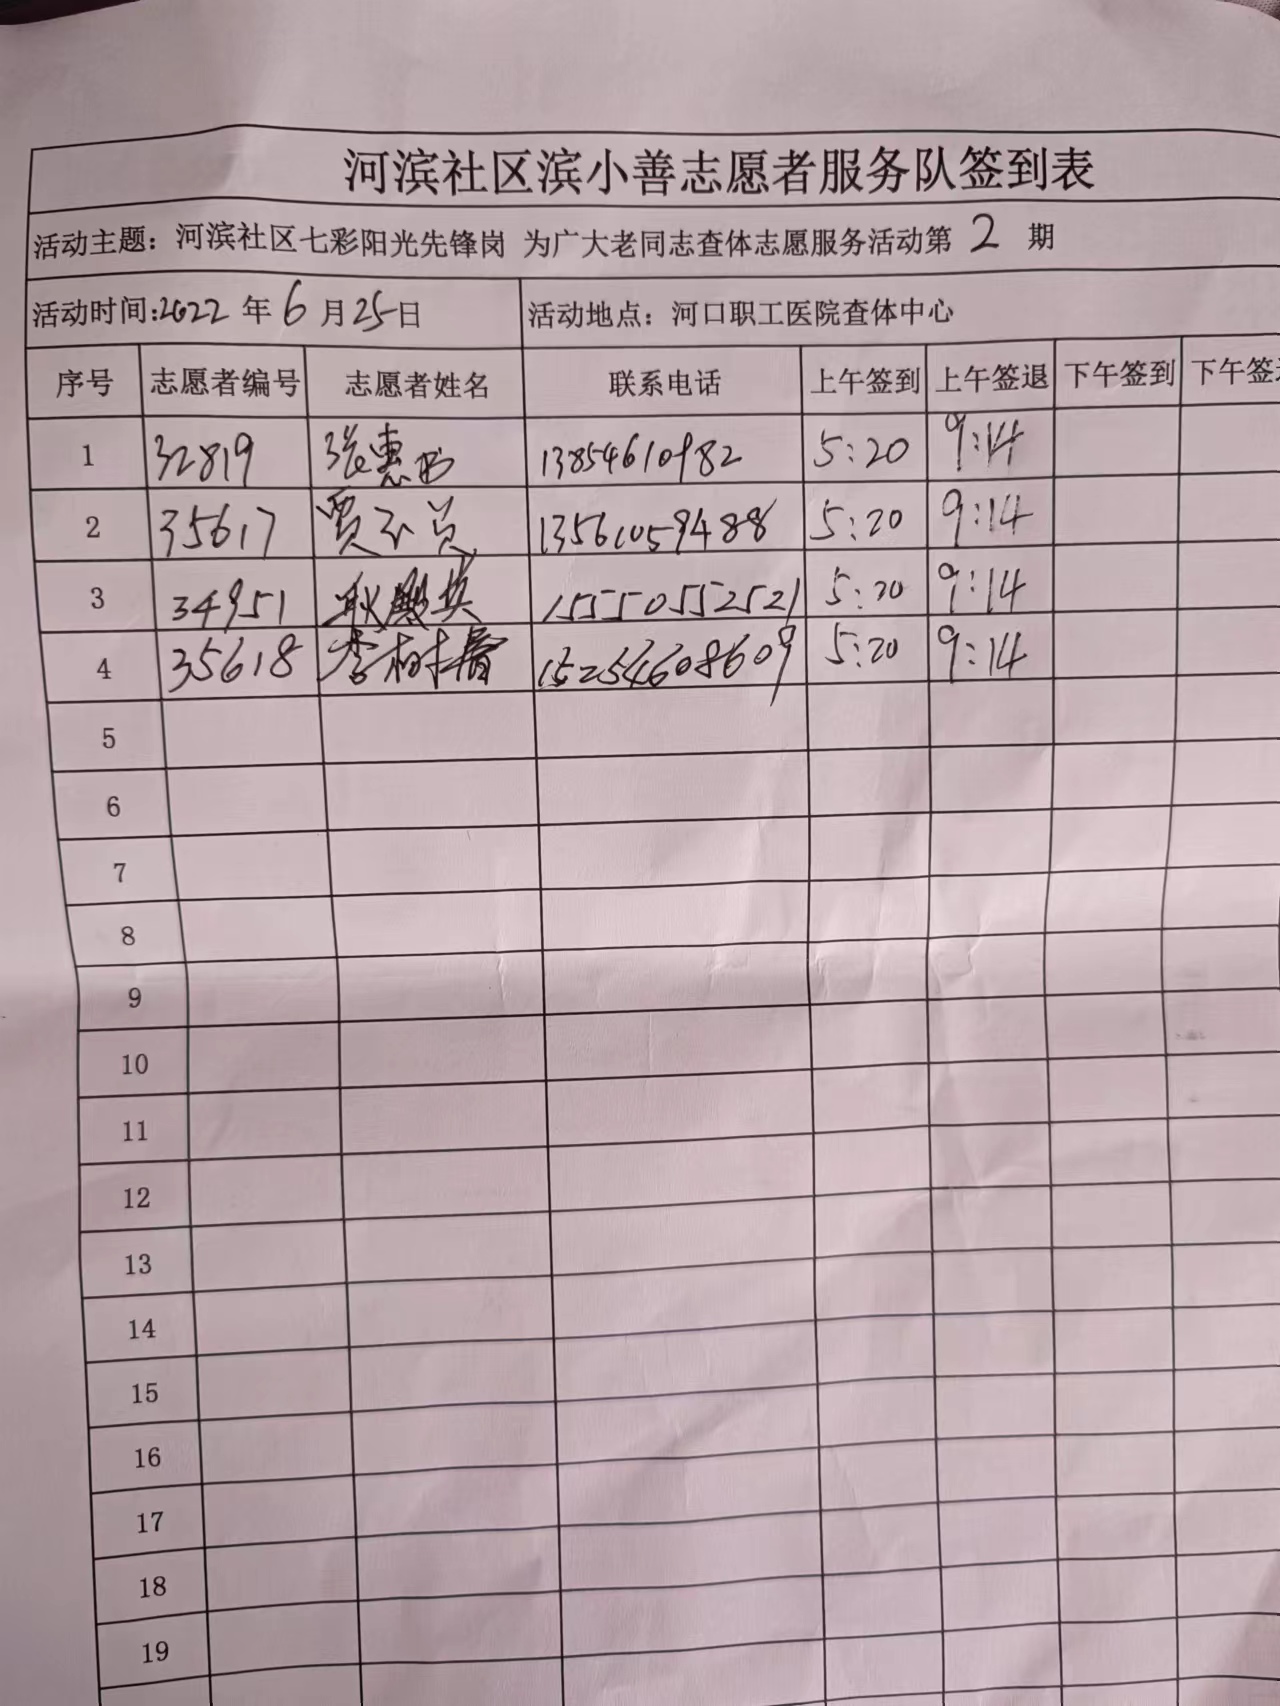 河滨社区滨小善志愿者服务队签到表
活动主题：河滨社区七彩阳光先锋岗 为广大老同志查体志愿服务活动第 2 期
活动时间:2022 年 6 月 25 日 活动地点：河口职工医院查体中心
序号 志愿者编号 志愿者姓名 联系电话 上午签到 上午签退 下午签到 下午签
1 32819 张惠 13854610982 5:20 9:14
2 35617 贾 13561059488 5:20 9:14
3 34951 耿 英 15550552521 5:20 9:14
4 35618 李树春 15254608609 5:20 9:14
5
6
7
8
9
10
11
12
13
14
15
16
17
18
19